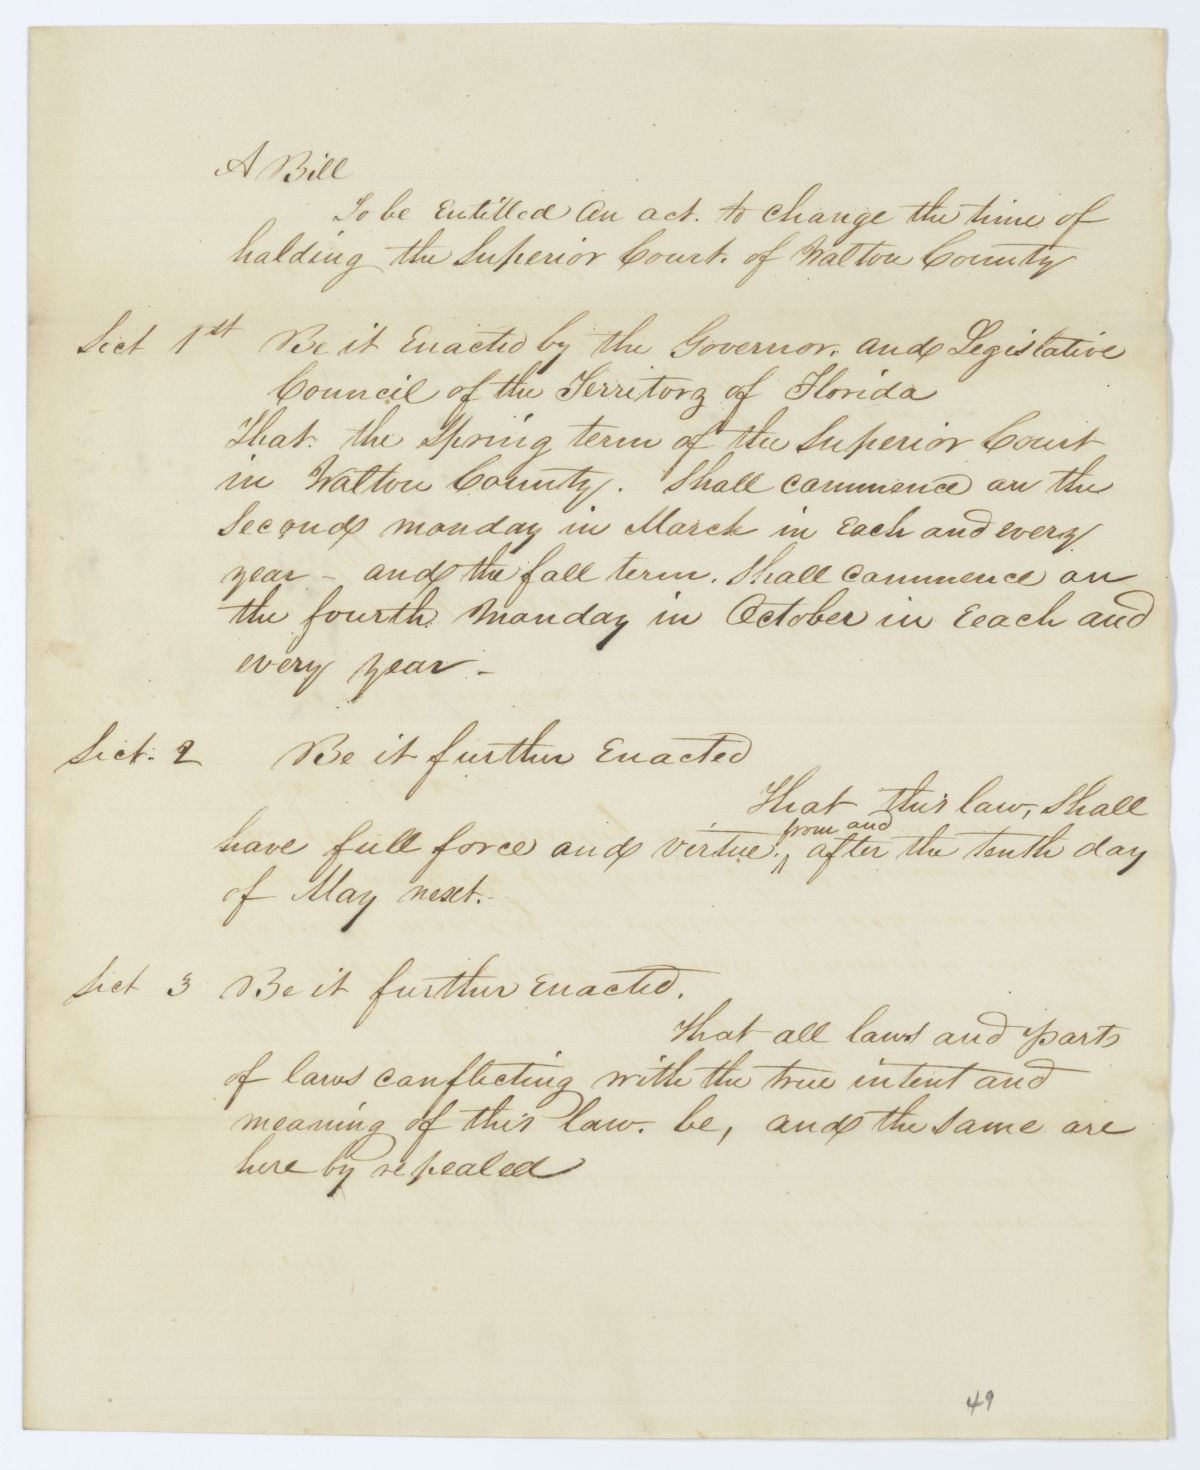 A Bill
To be Entitled An act. to change the time of
holding the Superior Court. of Walton County
Sect 1st Be it Enacted by the Governor. and Legislative
Council of the Territory of Florida
That. the Spring term of the Superior Court
in Walton County. Shall commence on the
Second monday in March in Each and every
year - and the fall term. Shall commence on
the fourth Monday in October in Eeach and
every year -
Sect. 2 Be it further Enacted
That this law, Shall
from and
have full force and virtue. after the tenth day
of May next.
Sect 3 Be it further Enacted.
That all laws and parts
of laws conflicting with the true intent and
meaning of this law. be, and the same are
here by repealed
49